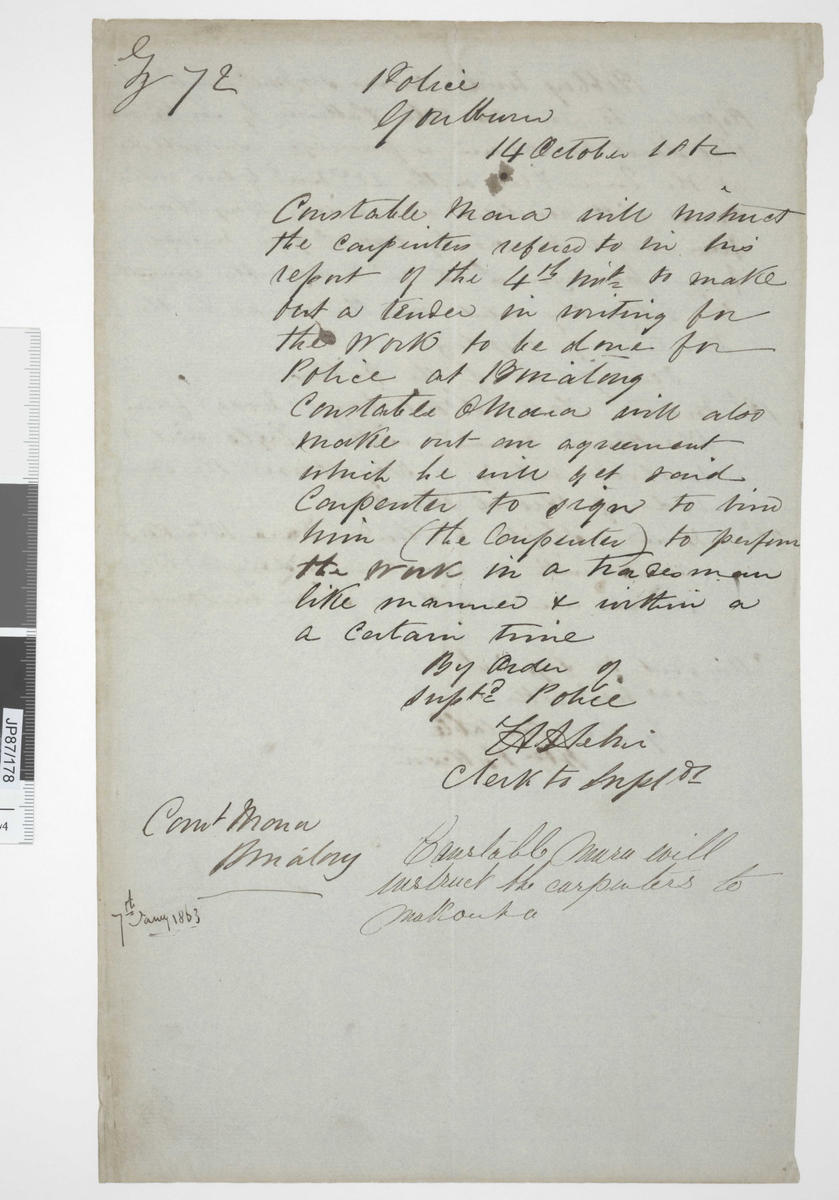 72
Police
Goulburn
14 October 1862
Constable Mara will instruct
the carpenters refered to in his
report of the 4th inst to make
out a tender in writing for
the work to be done for
Police at Binalong
Constable OMara will also
make out an agreement
which he will get said
Carpenter to sign to bind
him (the Carpenter) to perform
the work in a tradesman
like manner & within a
a certain time
By Order of
Suptd Police
Clerk to Suptdt
Const Mara
Binalong
Constable Mara will
instruct the carpenters to
make out a
7th Jany 1863
JP87/178